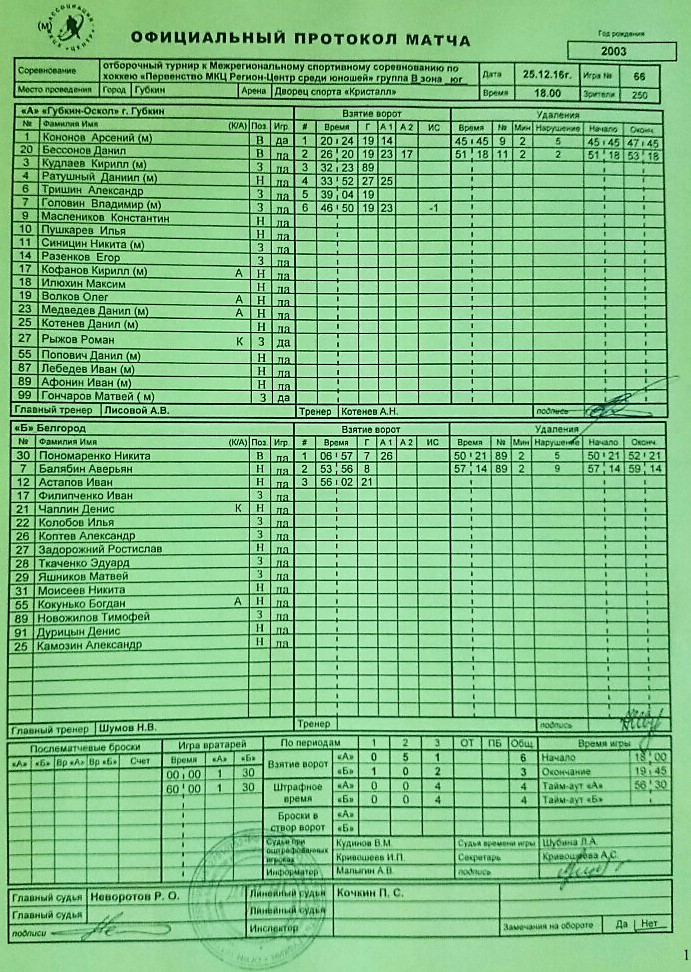 (М)
АССОЦИАЦИЯ
ОФИЦИАЛЬНЫЙ ПРОТОКОЛ МАТЧА
Год рождения
2003
Соревнование отборочный турнир к Межрегиональному спортивному соревнованию по хоккею «Первенство МКЦ Регион-Центр среди юношей» группа В зона _юг Дата 25.12.16г. Игра № 66
Место проведения Город Губкин Арена Дворец спорта «Кристалл» Время 18.00 Зрители 250
«А» «Губкин-Оскол» г. Губкин Взятие ворот Удаления
№ Фамилия Имя (К/А) Поз. Игр. # Время Г А 1 А 2 ИС Время № Мин Нарушение Начало Оконч.
1 Кононов Арсений (м) В да 1 20 24 19 14 45 45 9 2 5 45 45 47 45
20 Бессонов Данил В да 2 26 20 19 23 17 51 18 11 2 2 51 18 53 18
3 Кудлаев Кирилл (м) З да 3 32 23 89
4 Ратушный Даниил (м) Н да 4 33 52 27 25
6 Тришин Александр З да 5 39 04 19
7 Головин Владимир (м) З да 6 46 50 19 23 -1
9 Маслеников Константин Н да
10 Пушкарев Илья Н да
11 Синицин Никита (м) З да
14 Разенков Егор З да
17 Кофанов Кирилл (м) А Н да
18 Илюхин Максим Н да
19 Волков Олег А Н да
23 Медведев Данил (м) А Н да
25 Котенев Данил (м) Н да
27 Рыжов Роман К З да
55 Попович Данил (м) Н да
87 Лебедев Иван (м) Н да
89 Афонин Иван (м) Н да
99 Гончаров Матвей ( м) З да
Главный тренер Лисовой А.В. Тренер Котенев А.Н. подпись
«Б» Белгород Взятие ворот Удаления
№ Фамилия Имя (К/А) Поз. Игр. # Время Г А 1 А 2 ИС Время № Мин Нарушение Начало Оконч.
30 Пономаренко Никита В да 1 06 57 7 26 50 21 89 2 5 50 21 52 21
7 Балябин Аверьян Н да 2 53 56 8 57 14 89 2 9 57 14 59 14
12 Астапов Иван Н да 3 56 02 21
17 Филипченко Иван З да
21 Чаплин Денис К Н да
22 Колобов Илья З да
26 Коптев Александр З да
27 Задорожний Ростислав Н да
28 Ткаченко Эдуард З да
29 Яшников Матвей З да
31 Моисеев Никита Н да
55 Кокунько Богдан А Н да
89 Новожилов Тимофей З да
91 Дурицын Денис Н да
25 Камозин Александр Н да
Главный тренер Шумов Н.В. Тренер подпись
Послематчевые броски Игра вратарей По периодам 1 2 3 ОТ ПБ Общ Время игры
«А» «Б» Вр «А» Вр «Б» Счет Время «А» «Б» Взятие ворот «А» 0 5 1 6 Начало 18 00
00 00 1 30 «Б» 1 0 2 3 Окончание 19 45
60 00 1 30 Штрафное время «А» 0 0 4 4 Тайм-аут «А» 56 30
«Б» 0 0 4 4 Тайм-аут «Б»
Броски в створ ворот «А»
«Б»
Судьи при оштрафованных игроках Кудинов В.М. Судья времени игры Шубина Л.А.
Кривошеев И.П. Секретарь Кривошеева А.С.
Информатор Малыгин А.В. подпись
Главный судья Неворотов Р. О. Линейный судья Кочкин П. С.
Главный судья Линейный судья
подписи Инспектор Замечания на обороте Да Нет
1